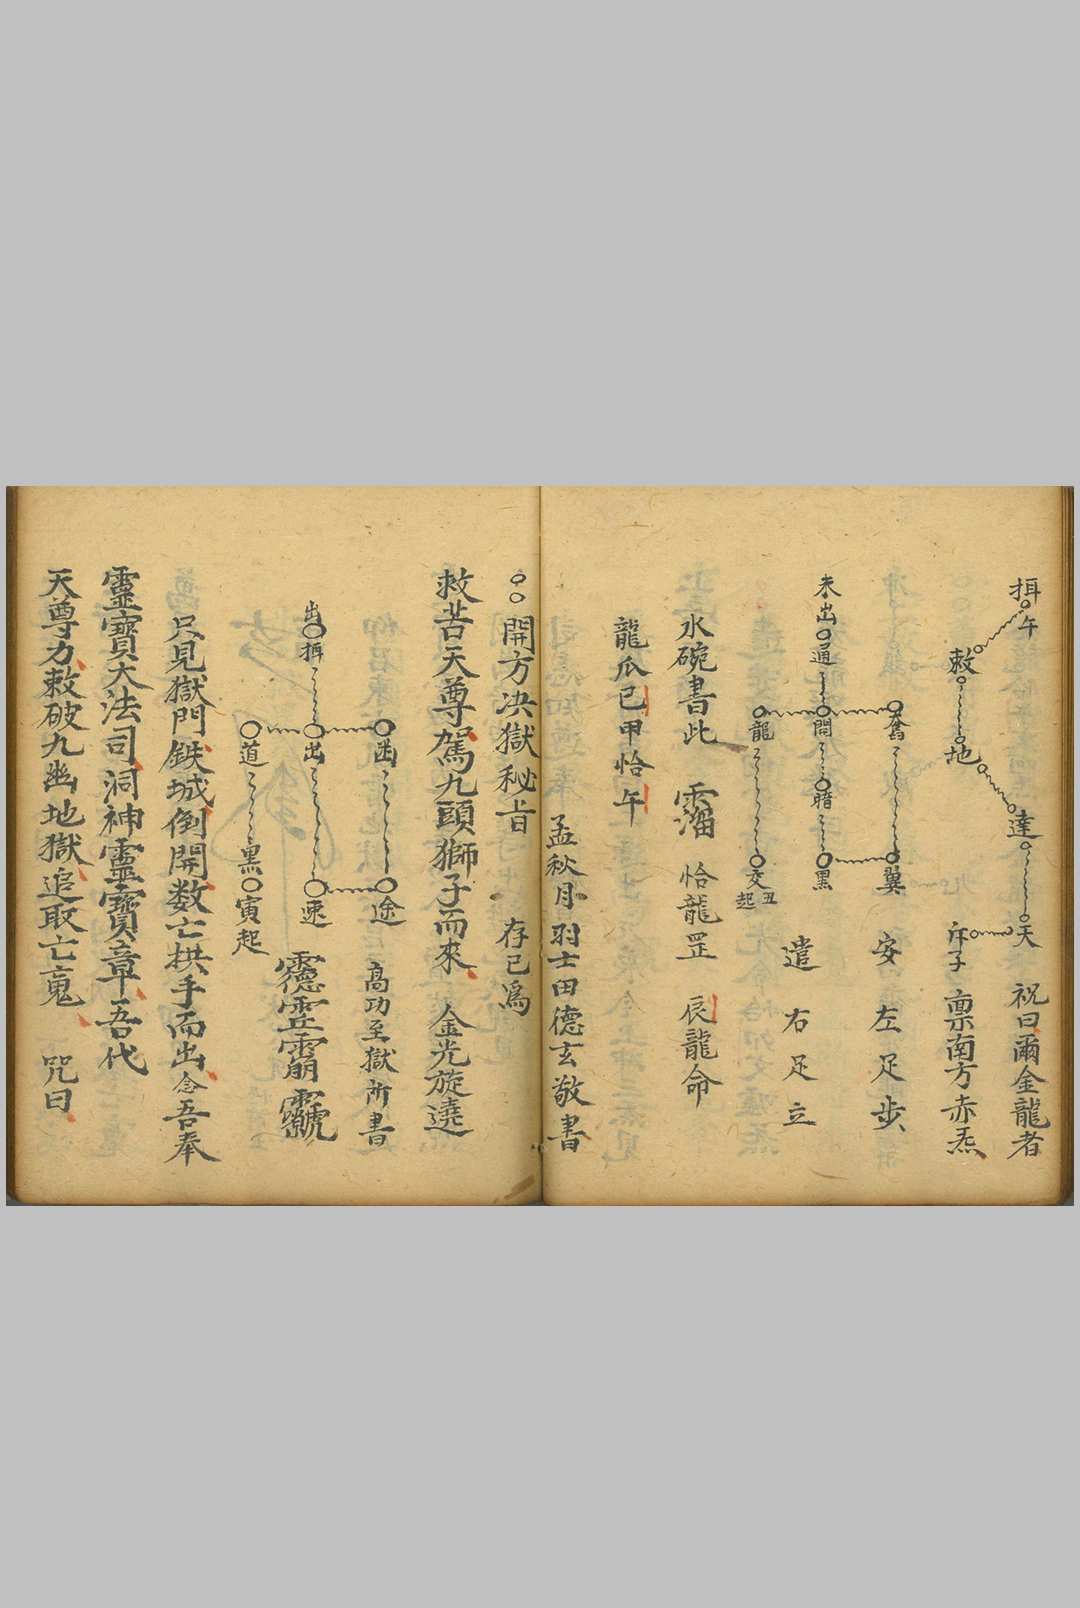 揖
午
敕
地
達
天
斥子
祝曰爾金龍者
禀南方赤炁
奮
翼
安左足步
未出
通
開
暗
黑
遣右足立
龍
交
丑
起
水碗書此
恰龍罡
辰龍命
龍瓜巳甲恰午
孟秋月羽士田德玄敬書
開方决獄秘旨
存已為
救苦天尊駕九頭獅子而來
金光旋遶
途
高功至獄所書
出
揖
出
速
道
黑
寅起
只見獄門鉄城倒開数亡拱手而出念吾奉
靈寶大法司洞神靈寶章吾代
天尊力敕破九幽地獄追取亡䰟
咒曰